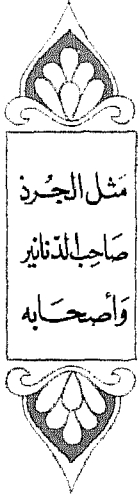 مَثَل الجرذ
صَاحِب الدّنانير
وَأصْحَابه